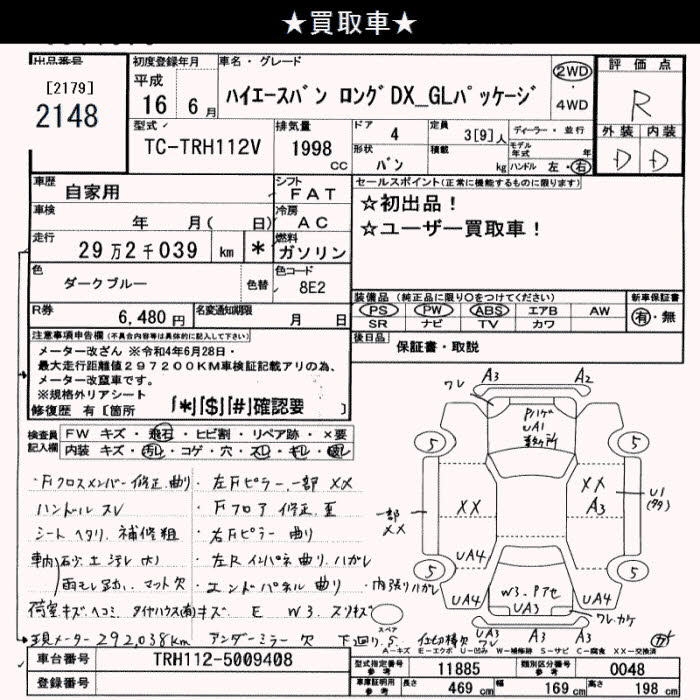 ★買取車★
出品番号
[2179]
2148
初度登録年月
平成
16 6月
車名・グレード
ハイエースバン ロングDX_GLパッケージ
2WD
・
4WD
評価点
R
外装 内装
D D
型式
TC-TRH112V
排気量
1998
cc
ドア 4
定員 3[9]人
形状 バン
積載 kg
ディーラー・並行
モデル年式 年
ハンドル 左・右
車歴 自家用
シフト FAT
車検 年 月( 日)
冷房 AC
走行 29万2千039 km *
燃料 ガソリン
色 ダークブルー
色替
色コード 8E2
R券 6,480円
名変通知期限 月 日
セールスポイント(正常に機能するものに限ります)
☆初出品!
☆ユーザー買取車!
装備品 (純正品に限り○をつけてください)
新車保証書
PS PW ABS エアB AW
SR ナビ TV カワ
有・無
後日品 保証書・取説
注意事項申告欄(不具合内容等は具体的に記入して下さい)
メーター改ざん ※令和4年6月28日・
最大走行距離値297200KM車検証記載アリの為、
メーター改竄車です。
※規格外リアシート
修復歴 有[箇所 「*」「$」「#」確認要 ]
検査員記入欄
FW キズ・飛石・ヒビ割・リペア跡・×要
内装 キズ・汚レ・コゲ・穴・スレ・キレ・破レ
・Fクロスメンバー修正、曲り
・左Fピラー、一部XX
ハンドル スレ
・Fフロア 修正、歪
シート ヘタリ、補修粗
・右Fピラー 曲り
車内 石沙土汚レ(大)
・左Rインパネ曲り、ハガレ
雨モレ跡、マット欠
・エンドパネル曲り
・内張りハガレ
荷室キズヘコミ
キズ E W3.スリキズ
現メーター292,038km
アンダーミラー欠 下廻りS
仕切棒欠
ワレ A3 A2
UA1
5 5
XX
XX
A3
一部
XX
U1
UA4 UA4
5 5
UA4 UA4
W3.
UA3
スペア
ワレ A3 A3
A-キズ E-エクボ U-凹み W-補修跡 S-サビ C-腐食 XX-交換済
車台番号 TRH112-5009408
登録番号
型式指定番号 参考 11885
類別区分番号 参考 0048
車庫証明用 参考
長さ 469 cm
幅 169 cm
高さ 198 cm